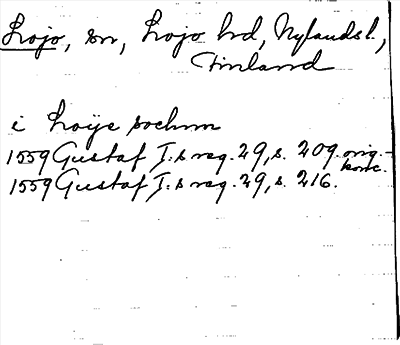 Lojo, sn, Lojo hd, Nylandsl.,
Finland
i Loije sochnn
1559 Gustaf I:s reg. 29, s. 209 orig.-
konc.
1559 Gustaf I:s reg. 29, s. 216.